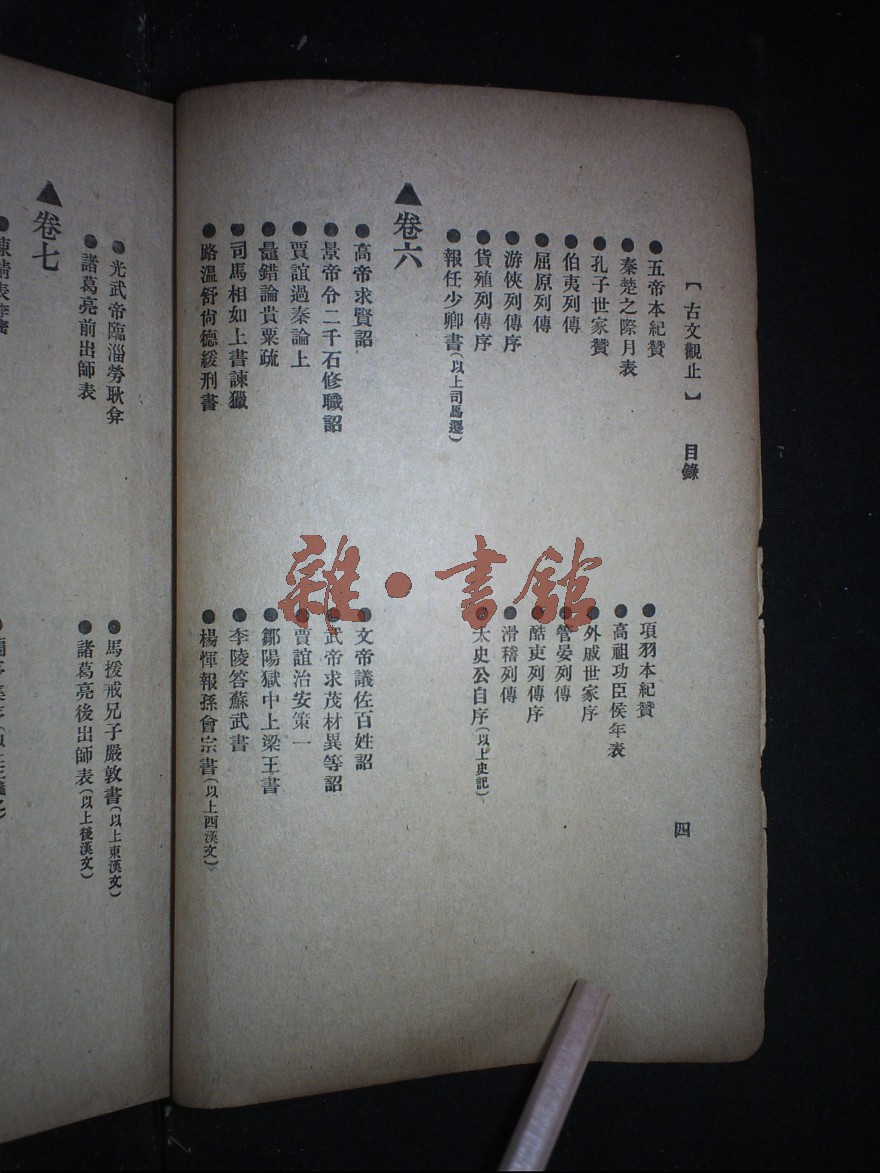 【古文觀止】 目錄 四
●五帝本紀贊 ●項羽本紀贊
●秦楚之際月表 ●高祖功臣侯年表
●孔子世家贊 ●外戚世家序
●伯夷列傳 ●管晏列傳
●屈原列傳 ●酷吏列傳序
●游俠列傳序 ●滑稽列傳
●貨殖列傳序 ●太史公自序(以上史記)
●報任少卿書(以上司馬遷)
▲卷六
●高帝求賢詔 ●文帝議佐百姓詔
●景帝令二千石修職詔 ●武帝求茂材異等詔
●賈誼過秦論上 ●賈誼治安策一
●鼂錯論貴粟疏 ●鄒陽獄中上梁王書
●司馬相如上書諫獵 ●李陵答蘇武書
●路溫舒尚德緩刑書 ●楊惲報孫會宗書(以上西漢文)
●光武帝臨淄勞耿弇 ●馬援戒兄子嚴敦書(以上東漢文)
●諸葛亮前出師表 ●諸葛亮後出師表(以上後漢文)
▲卷七
●陳情表李密
雜·書館